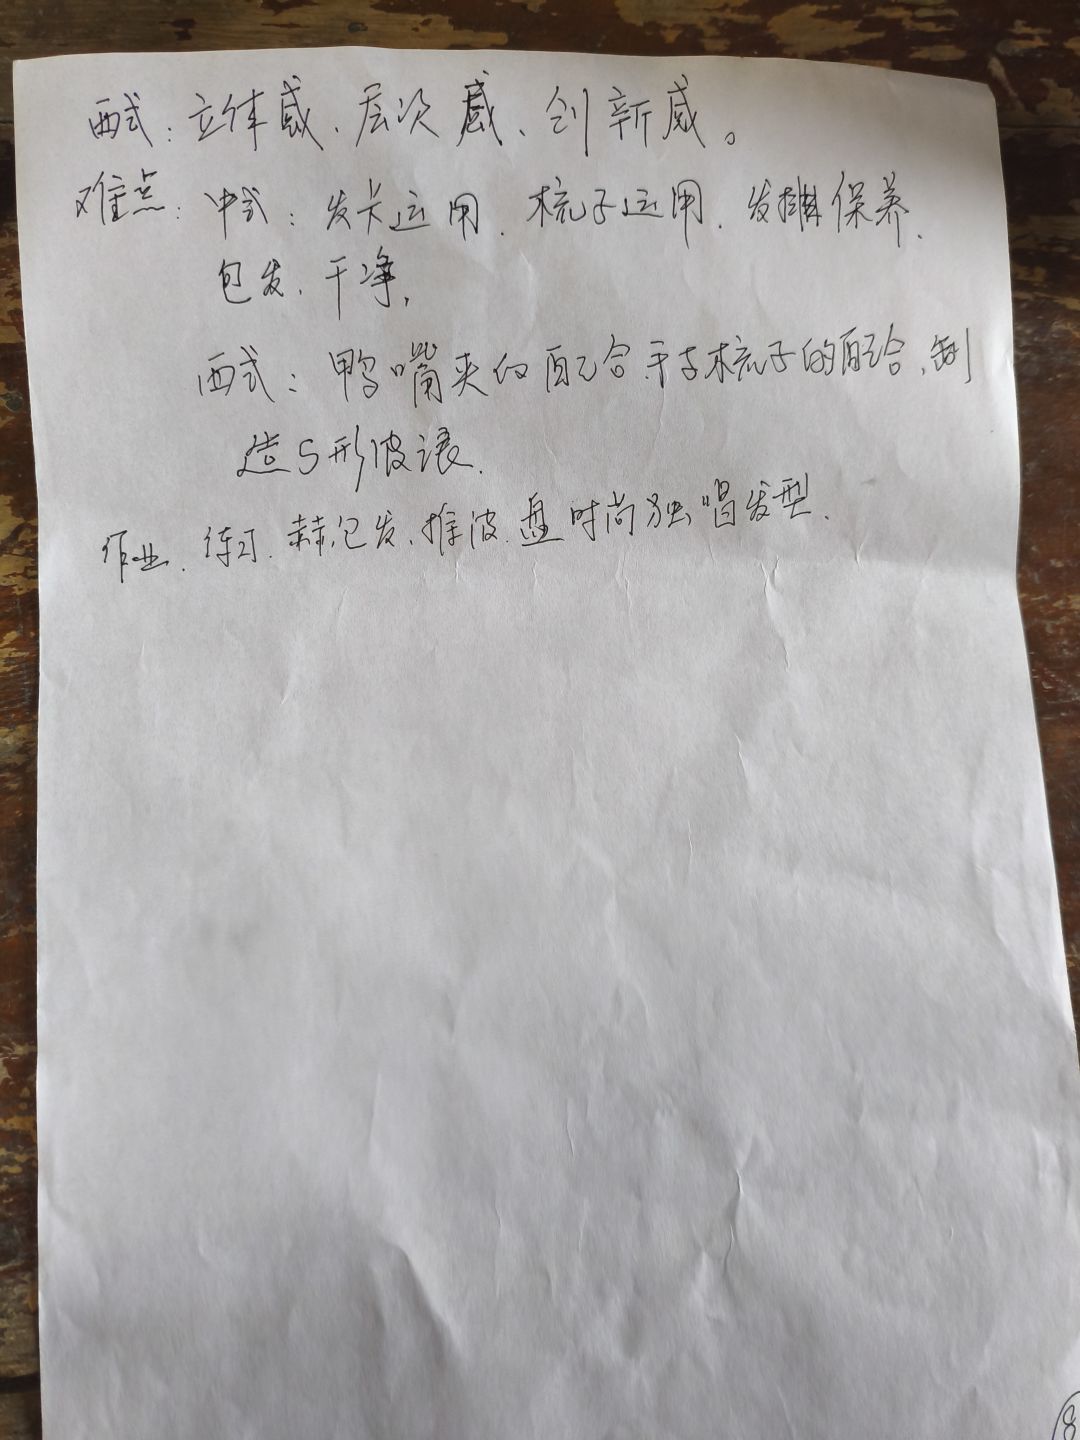 西式：立体感、层次感、创新感。
难点：中式：发卡运用、梳子运用、发排保养、
包发、干净，
西式：鸭嘴夹的配合、手与梳子的配合、制
造S形波浪、
作业、练习、包发、推波、盘时尚独唱发型、
8